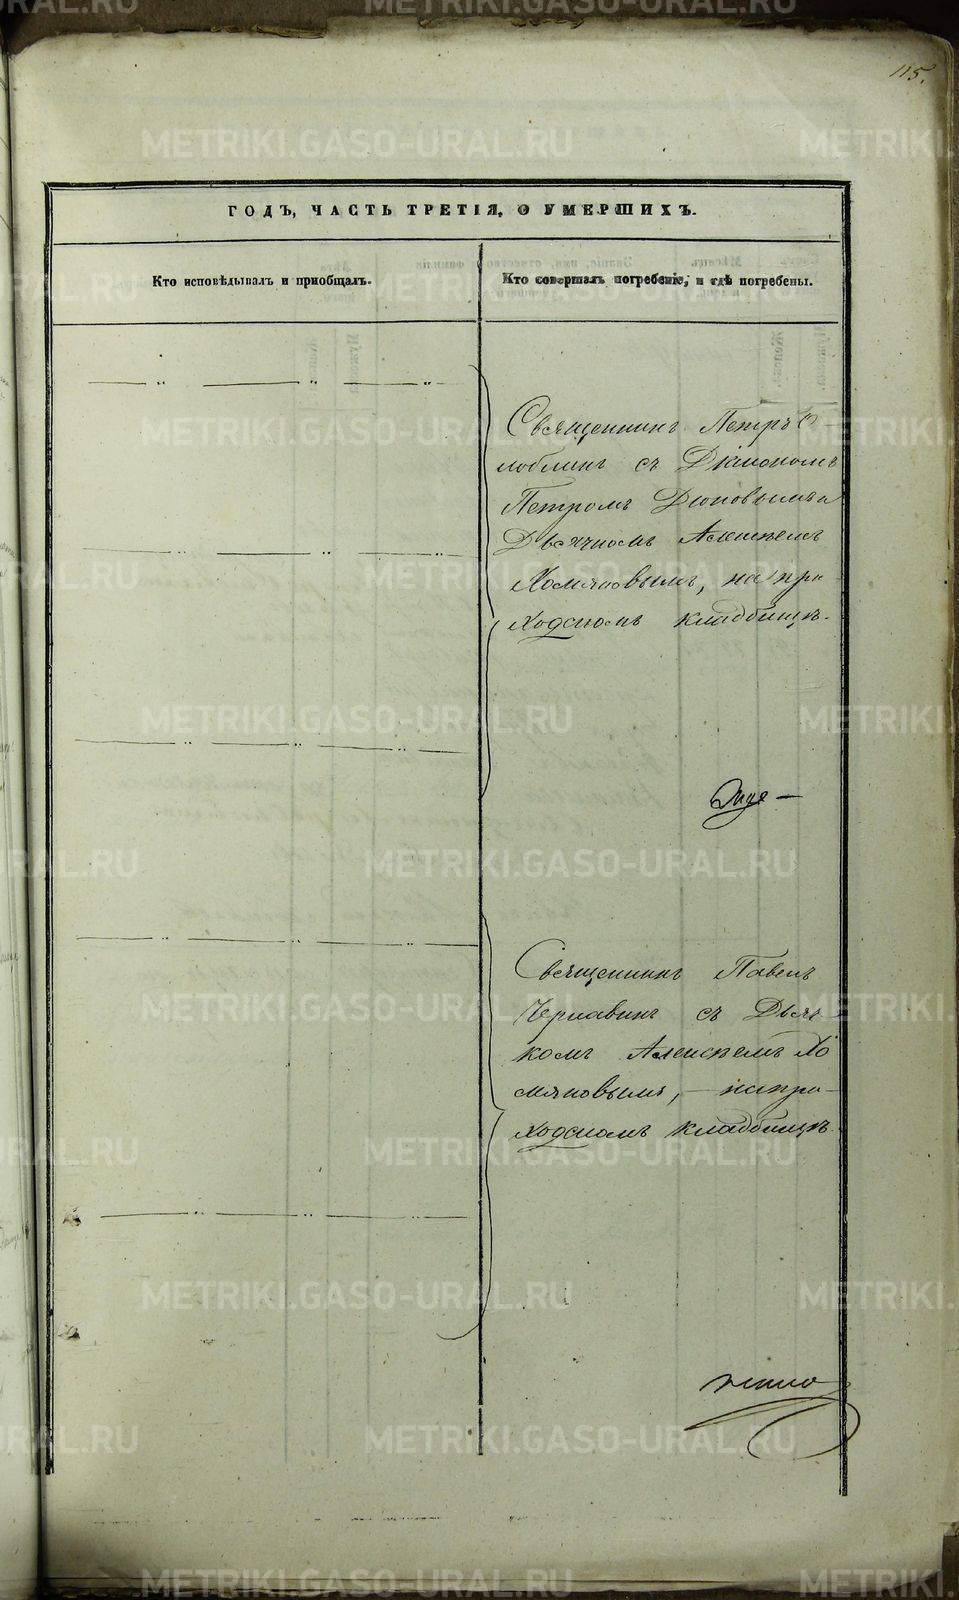 115.
ГОДЪ, ЧАСТЬ ТРЕТІЯ, О УМЕРШИХЪ.
Кто исповѣдывалъ и приобщалъ.
Кто совершалъ погребеніе, и гдѣ погребены.
Священникъ Петръ О-
лоблинъ съ Діакономъ
Петромъ
Дьячкомъ Алексѣемъ
Хомяковымъ, на при
ходскомъ кладбищѣ.
Священникъ Павелъ
Чернавинъ съ Дьяч
комъ Алексѣемъ Хо
мяковымъ, на при-
ходскомъ кладбищѣ.
METRIKI.GASO-URAL.RU